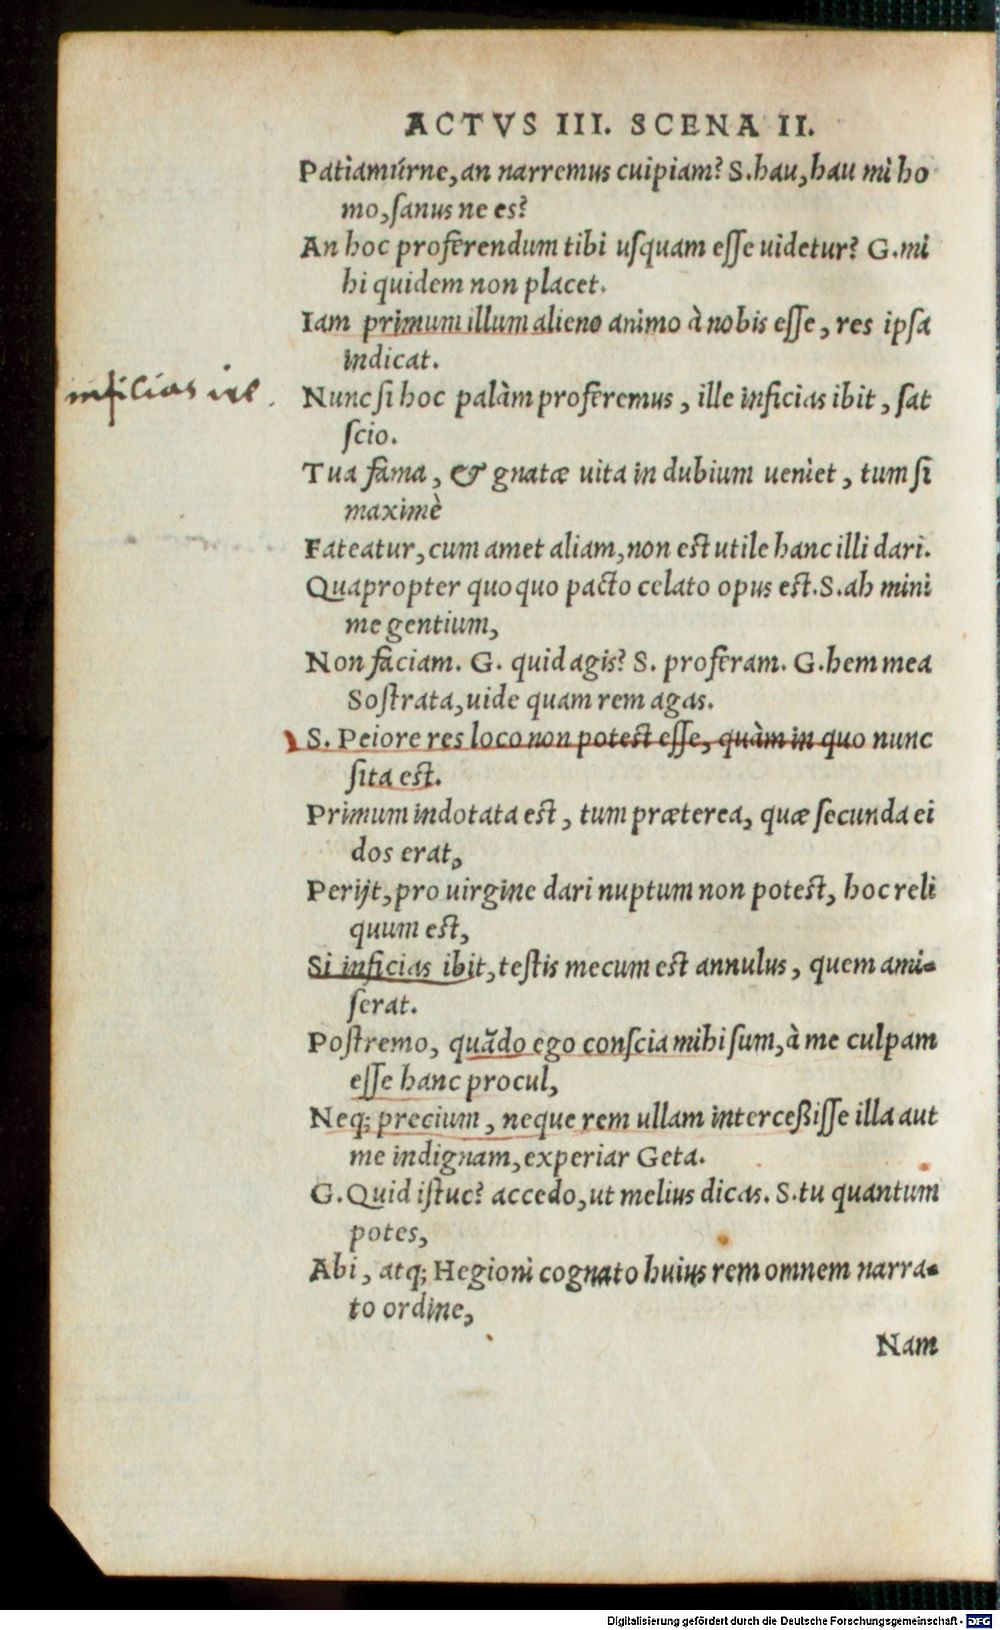 ACTVS III. SCENA II.
Patiamúrne, an narremus cuipiam? S. hau, hau mi ho
mo, ſanus ne es?
An hoc proferendum tibi uſquam eſſe uidetur? G. mi
hi quidem non placet.
Iam primum illum alieno animo à nobis eſſe, res ipſa
indicat.
inficias ire.
Nunc ſi hoc palàm proferemus, ille inficias ibit, ſat
ſcio.
Tua fama, & gnatæ uita in dubium ueniet, tum ſi
maximè
Fateatur, cum amet aliam, non eſt utile hanc illi dari.
Quapropter quoquo pacto celato opus eſt. S. ah mini
me gentium,
Non faciam. G. quid agis? S. proferam. G. hem mea
Soſtrata, uide quam rem agas.
S. Peiore res loco non poteſt eſſe, quàm in quo nunc
ſita eſt.
Primum indotata eſt, tum præterea, quæ ſecunda ei
dos erat,
Perijt, pro uirgine dari nuptum non poteſt, hoc reli
quum eſt,
Si inficias ibit, teſtis mecum eſt annulus, quem ami-
ſerat.
Poſtremo, quãdo ego conſcia mihi ſum, à me culpam
eſſe hanc procul,
Neq; precium, neque rem ullam interceßiſſe illa aut
me indignam, experiar Geta.
G. Quid iſtuc? accedo, ut melius dicas. S. tu quantum
potes,
Abi, atq; Hegioni cognato huius rem omnem narra-
to ordine,
Nam
Digitalisierung gefördert durch die Deutsche Forschungsgemeinschaft - DFG